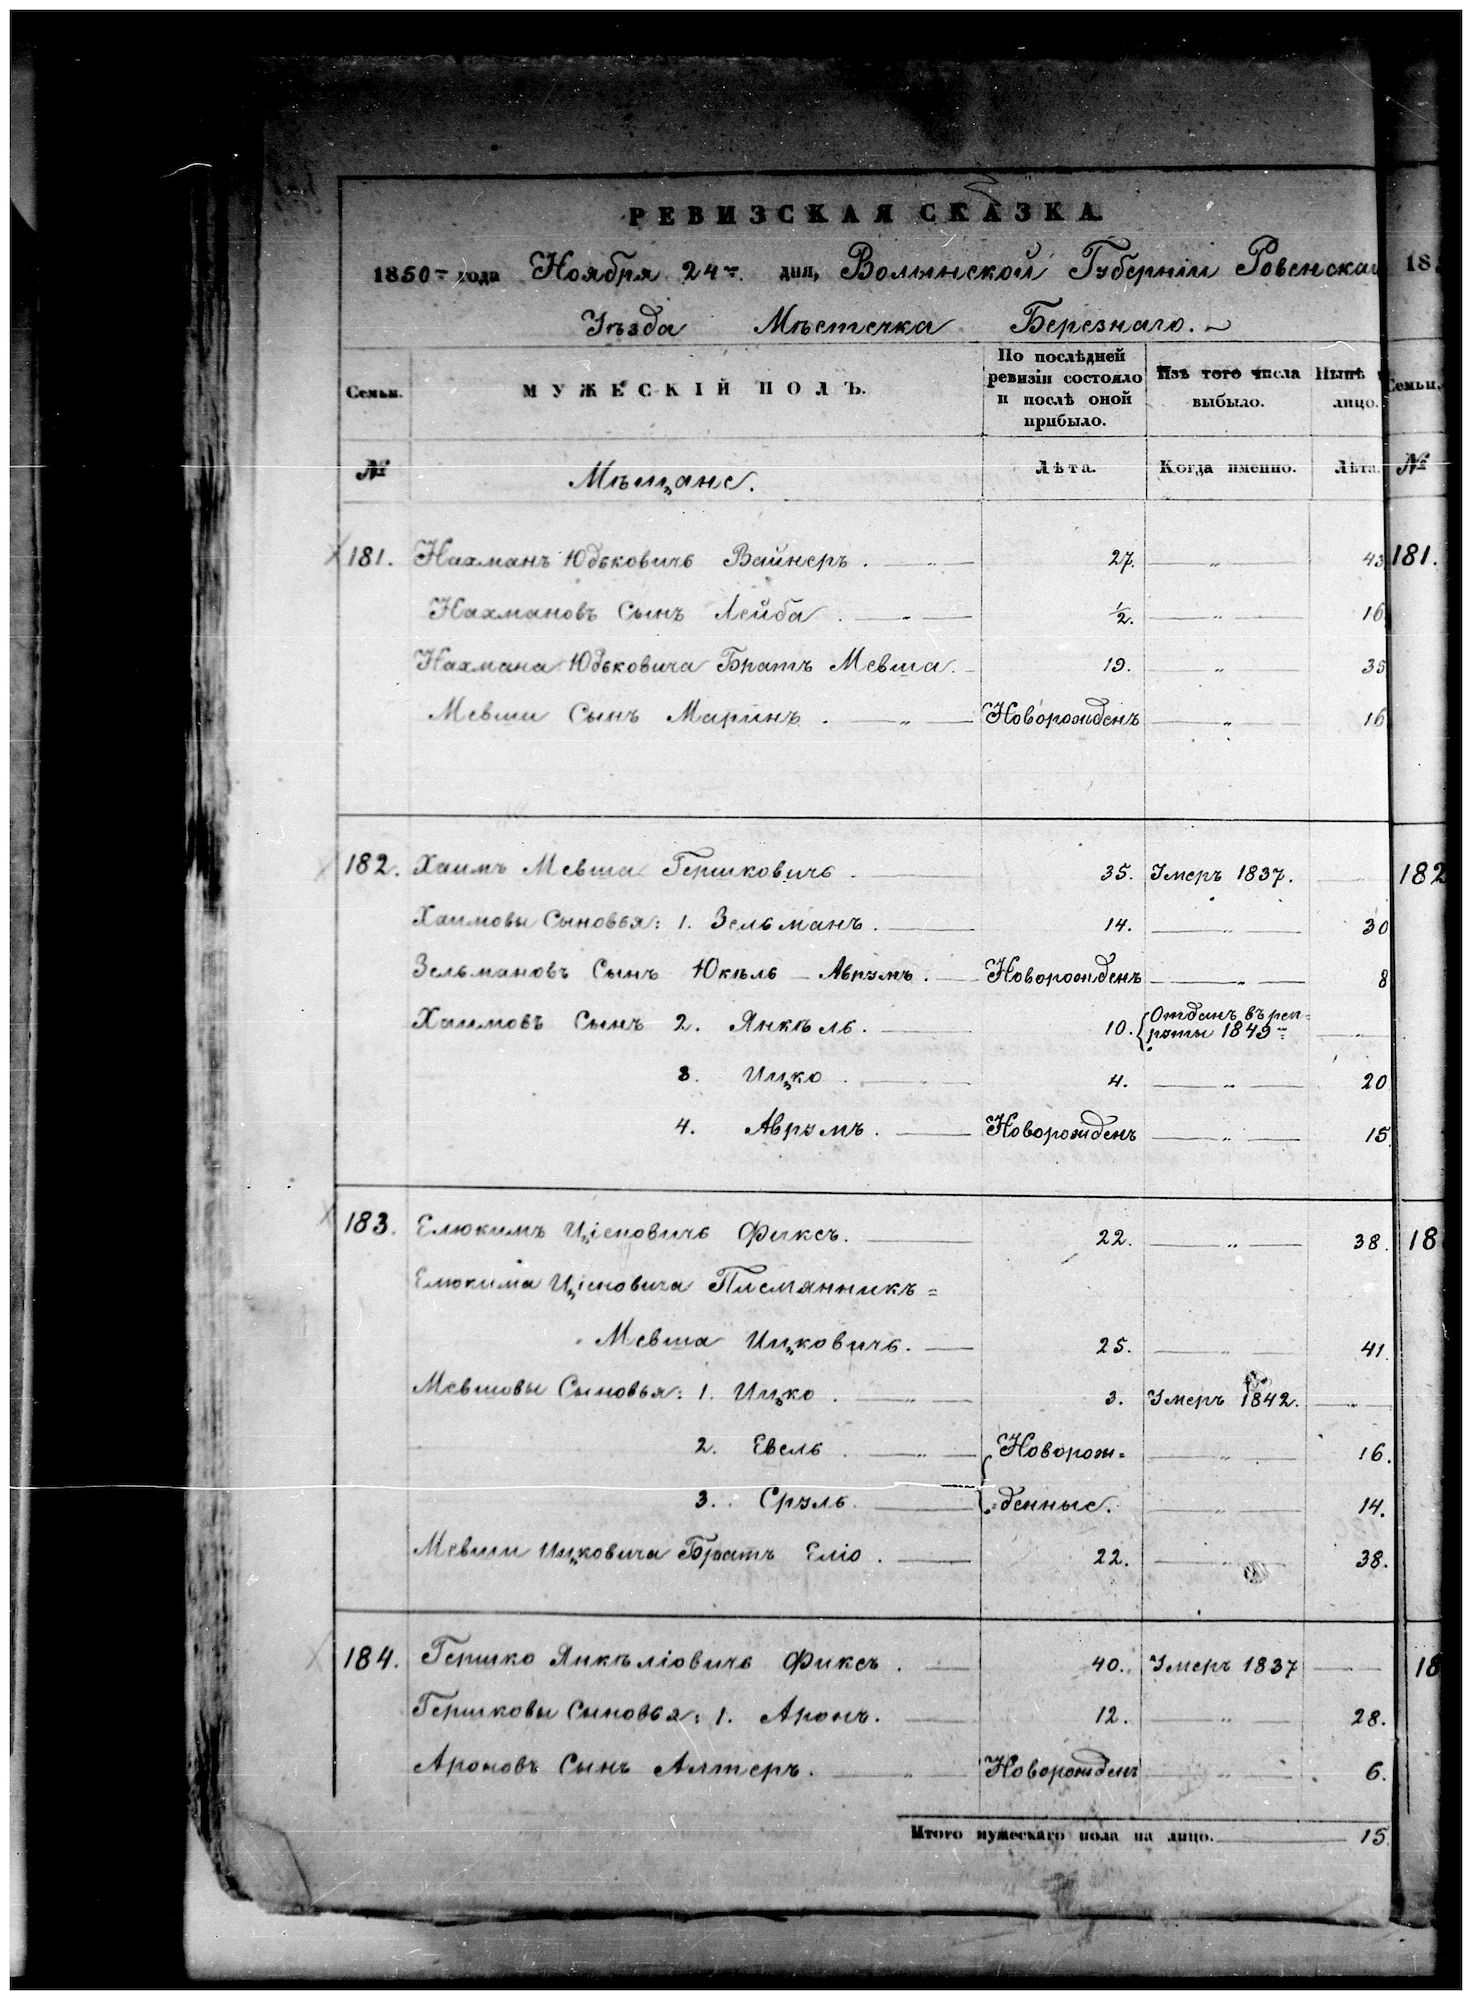 РЕВИЗСКАЯ СКАЗКА.
1850го года Ноября 24го дня, Волынской Губерніи Ровенскаго 18
Уѣзда Мѣстечка Березнаго.
Семьи. МУЖЕСКІЙ ПОЛЪ. По послѣдней ревизіи состояло и послѣ оной прибыло. Изъ того числа выбыло. Нынѣ лицо. Семьи.
№ Мѣщане. Лѣта. Когда именно. Лѣта. №
181. Нахманъ Юдьковичь Вайнеръ. — " — 27. — " — 43 181.
Нахмановъ Сынъ Лейба. — " — ½. — " — 16.
Нахмана Юдьковича Братъ Мевша. — 19. — " — 35
Мевши Сынъ Маринъ. — " — Новорожденъ — " — 16
182. Хаимъ Мевша Гершковичь. — 35. Умеръ 1837. — 182
Хаимовы Сыновья: 1. Зельманъ. — 14. — " — 30
Зельмановъ Сынъ Юкѣль - Аврумъ. — Новорожденъ — " — 8
Хаимовъ Сынъ 2. Янкѣль. — 10. Отданъ въ рек=
руты 1849го — " —
3. Ицко. — " — 4. — " — 20
4. Аврумъ. — Новорожденъ — " — 15.
183. Елюкимъ Ціеновичь Фиксъ. — 22. — " — 38. 18
Елюкима Ціеновича Племянникъ =
Мевша Ицковичь. — 25. — " — 41.
Мевшовы Сыновья: 1. Ицко. — " — 3. Умеръ 1842. — " —
2. Евель. — " — Новорож= — " — 16.
3. Сруль. — =денные. — " — 14.
Мевши Ицковича Братъ Еліо. — 22. — " — 38.
184. Гершко Янкѣліовичь Фиксъ. — 40. Умеръ 1837 — 18
Гершковы Сыновья: 1. Аронъ. — 12. — " — 28.
Ароновъ Сынъ Алтеръ. — " — Новорожденъ — " — 6.
Итого мужескаго пола на лицо. — 15.